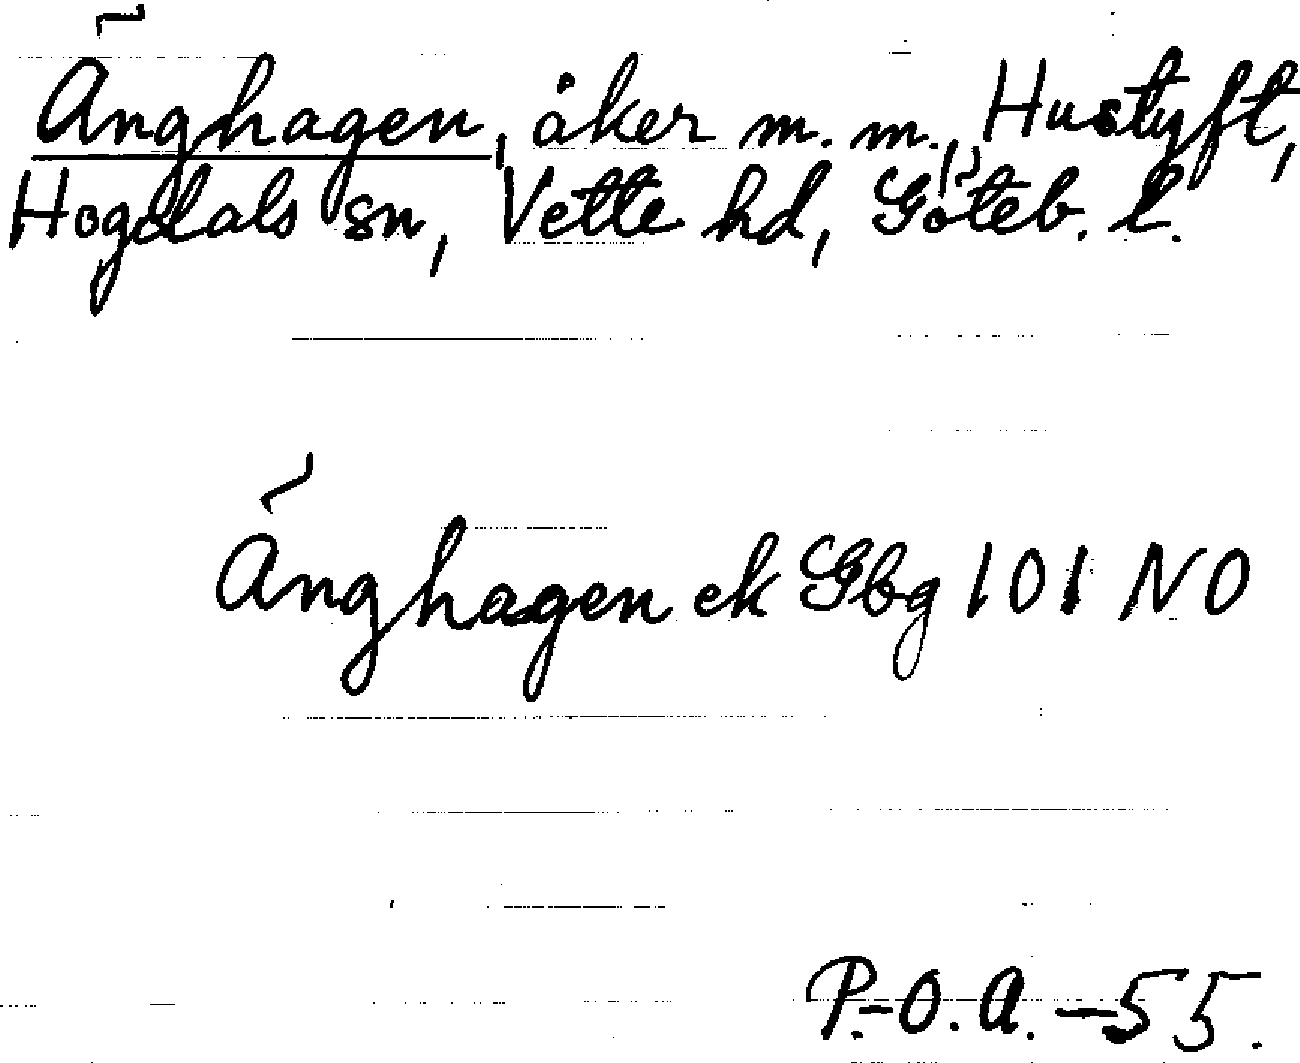 Änghagen, åker m. m., Hustyft,
Hogdals sn, Vette hd, Göteb. l.
Änghagen ek Gbg 101 NO
P.-O. A. -55.